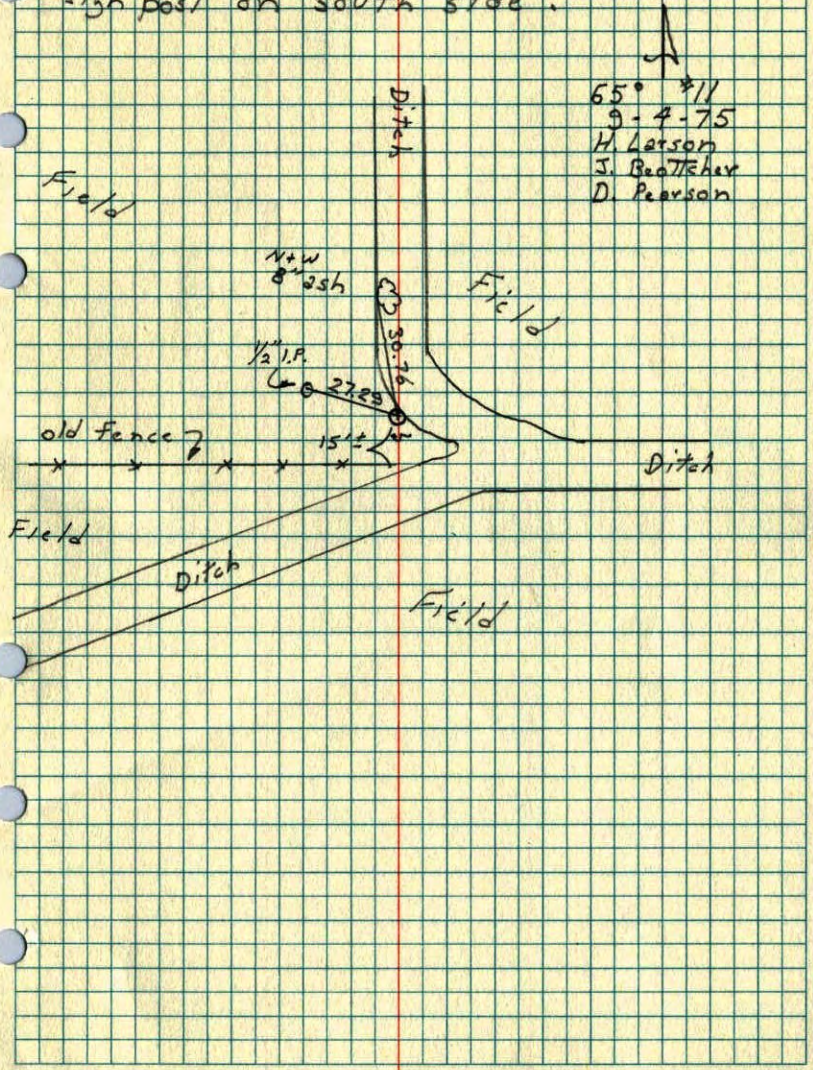 sign post on south side.
65° #11
9-4-75
H. Larson
J. Beottcher
D. Pearson
Ditch
Field
N+W
8" ash
Field
30.76
1/2" I.P.
27.29
old fence
15'±
Ditch
Field
Ditch
Field